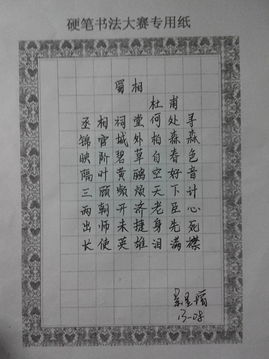 硬笔书法大赛专用纸
蜀相
杜甫
丞相祠堂何处寻
锦官城外柏森森
映阶碧草自春色
隔叶黄鹂空好音
三顾频烦天下计
两朝开济老臣心
出师未捷身先死
长使英雄泪满襟
13-08